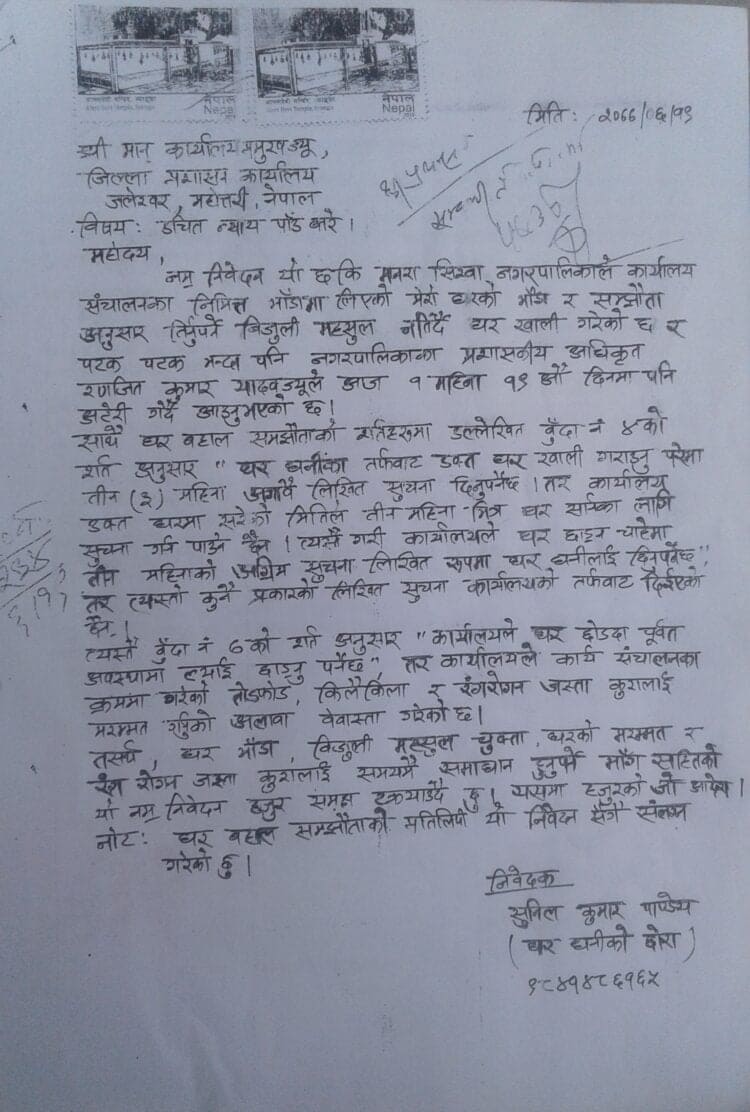 नेपाल
Nepal
नेपाल
Nepal
मिति: २०७७/०६/१९
श्री मान् कार्यालय प्रमुखज्यू,
जिल्ला प्रशासन कार्यालय
जलेश्वर, महोत्तरी, नेपाल
विषय: उचित न्याय पाँउ बारे।
महोदय,
नम्र निवेदन यो छकि मनरा सिस्वा नगरपालिकाले कार्यालय
संचालनका निमित्त भाँडामा लिएको मेरो घरको भाँडा र सम्झौता
अनुसार तिर्नुपर्ने बिजुली महसुल नतिर्दै घर खाली गरेको छ र
पटक पटक भन्दा पनि नगरपालिकाका प्रशासकीय अधिकृत
रणजित कुमार यादवज्यूले आज १ महिना १९ औं दिनमा पनि
अटेरी गर्दै आइनुभएको छ।
साथै घर वहाल समझौताको शर्तहरुमा उल्लेखित बुँदा नं ४ को
शर्त अनुसार " घर धनीका तर्फवाट उक्त घर खाली गराउनु परेमा
तीन (३) महिना अगावै लिखित सुचना दिनुपर्नेछ। तर कार्यालय
उक्त घरमा सरेको मितिले तीन महिना भित्र घर सार्नका लागि
सुचना गर्न पाउने छैन। त्यसै गरी कार्यालयले घर छाड्न चाहेमा
तीन महिनाको अग्रिम सुचना लिखित रूपमा घर धनीलाई दिनुपर्नेछ",
तर त्यस्तो कुनै प्रकारको लिखित सुचना कार्यालयको तर्फवाट दिईएको
छैन।
त्यस्तै बुँदा नं ७ को शर्त अनुसार " कार्यालयले घर छोड्दा पूर्वत
अवस्थामा ल्याई छाड्नु पर्नेछ" तर कार्यालयले कार्य संचालनका
क्रममा गरेको तोडफोड, किलैकिला र रंगरोगन जस्ता कुरालाई
मरम्मत गर्नुको अलावा वेवास्ता गरेको छ।
तसर्थ, घर भाँडा, विजुली महसुल चुक्ता, घरको मरम्मत र
रंग रोगन जस्ता कुरालाई समयमै समाधान हुनुपर्ने माँग सहितको
यो नम्र निवेदन हजुर समक्ष टक्र्याउँदै छु। यसमा हजुरको जो आदेश।
नोट: घर वहाल समझौताको प्रतिलिपी यो निवेदन सँगै संलग्न
गरेको छु।
निवेदक
सुनिल कुमार पाण्डेय
(घर धनीको छोरा)
९८४१४८६१६५